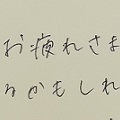 お疲れさま
るかもしれ